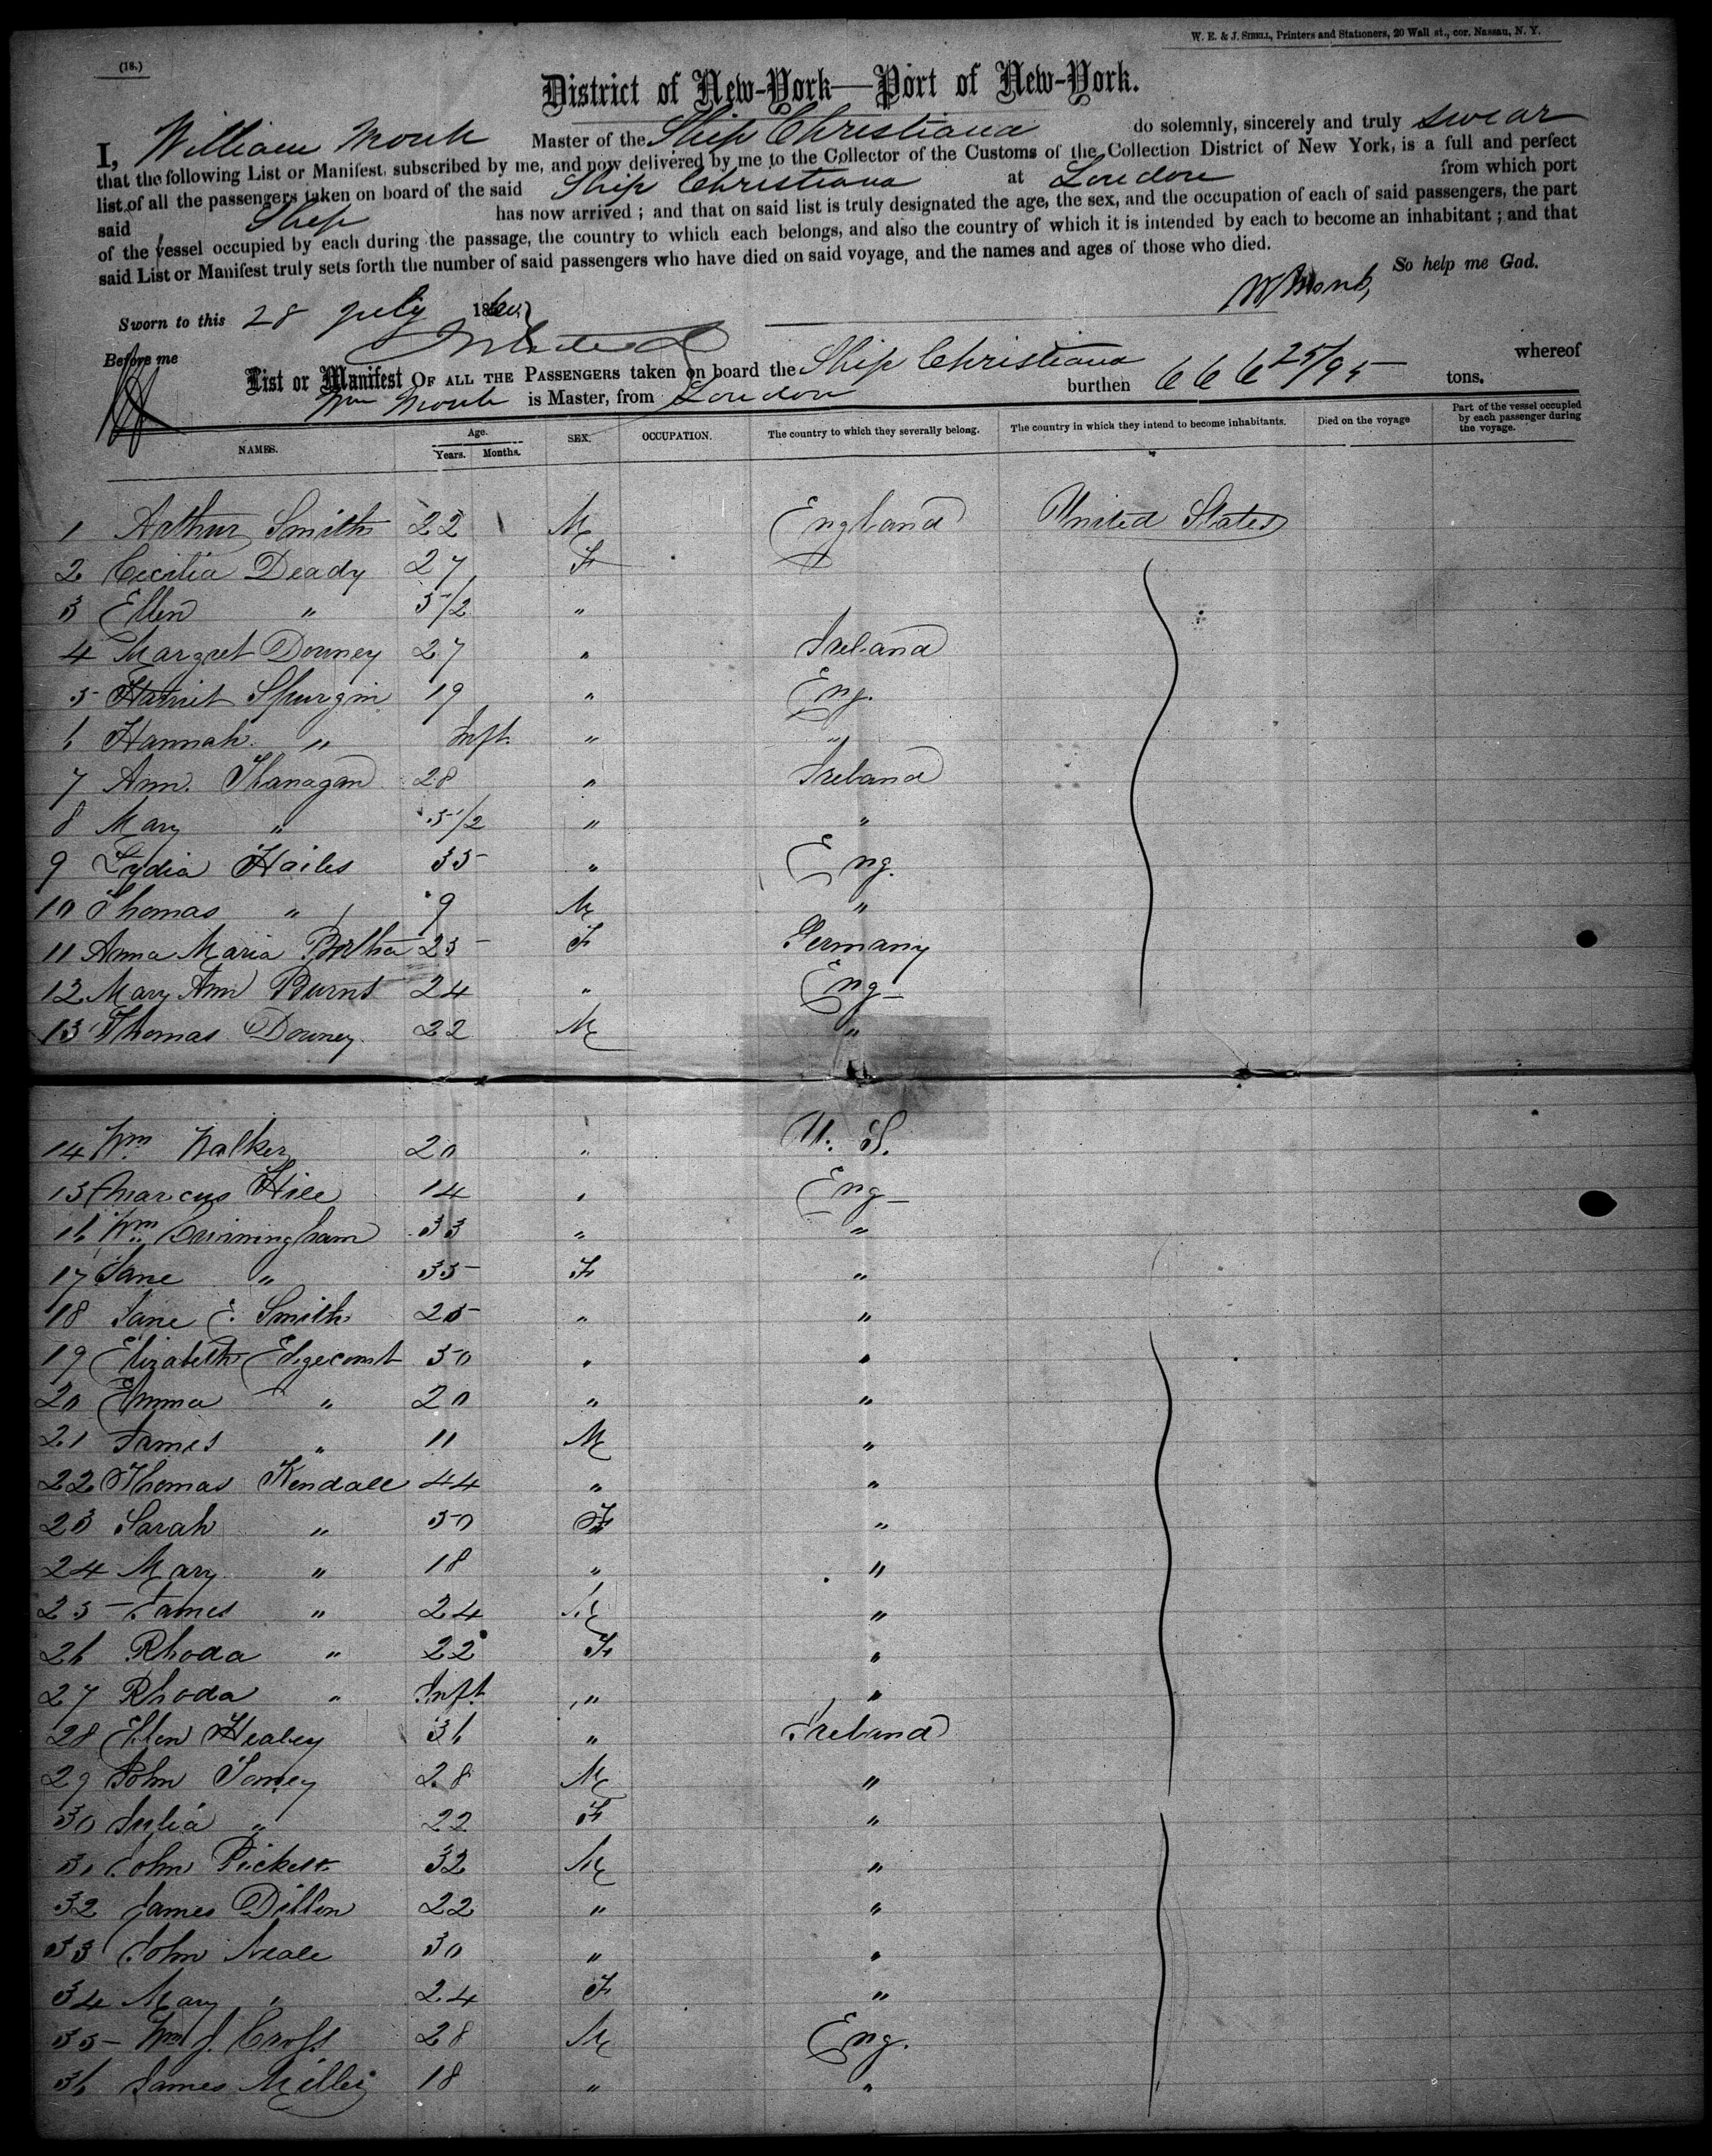 W. E. & J. SIBELL, Printers and Stationers, 20 Wall st., cor. Nassau, N. Y.
(18.)
District of New-York—Port of New-York.
I, William Monk Master of the Ship Christiana do solemnly, sincerely and truly swear
that the following List or Manifest, subscribed by me, and now delivered by me to the Collector of the Customs of the Collection District of New York, is a full and perfect
list of all the passengers taken on board of the said Ship Christiana at London from which port
said Ship has now arrived ; and that on said list is truly designated the age, the sex, and the occupation of each of said passengers, the part
of the vessel occupied by each during the passage, the country to which each belongs, and also the country of which it is intended by each to become an inhabitant ; and that
said List or Manifest truly sets forth the number of said passengers who have died on said voyage, and the names and ages of those who died.
So help me God.
W Monk,
Sworn to this 28 July 1860.
Before me
List or Manifest OF ALL THE PASSENGERS taken on board the Ship Christiana whereof
Wm Monk is Master, from London burthen 666 25/95 tons.
NAMES. Age. Years. Months. SEX. OCCUPATION. The country to which they severally belong. The country in which they intend to become inhabitants. Died on the voyage Part of the vessel occupied by each passenger during the voyage.
1 Arthur Smith 22 M England United States
2 Cecilia Deady 27 F
3 Ellen " 5/2 "
4 Margret Downey 27 " Ireland
5 Harriet Spurgin 19 " Eng.
6 Hannah " Inft. " "
7 Ann. Flanagan 28 " Ireland
8 Mary " 5/2 " "
9 Lydia Hailes 35 " Eng.
10 Thomas " 9 M "
11 Anna Maria Bertha 25 F Germany
12 Mary Ann Burns 24 " Eng
13 Thomas Downey 22 M "
14 Wm. Walker 20 " U. S.
15 Marcus Hill 14 " Eng
16 Wm. Cunningham 33 " "
17 Jane " 35 F "
18 Jane E. Smith 25 " "
19 Elizabeth Edgecomb 50 " "
20 Emma " 20 " "
21 James " 11 M "
22 Thomas Kendall 44 " "
23 Sarah " 50 F "
24 Mary " 18 " "
25 James " 24 M "
26 Rhoda " 22 F "
27 Rhoda " Inft " "
28 Ellen Healey 36 " Ireland
29 John Tomey 28 M "
30 Julia " 22 F "
31 John Pickett 32 M "
32 James Dillon 22 " "
33 John Neale 30 " "
34 Mary " 24 F "
35 Wm J. Cross 28 M Eng.
36 James 18 " "